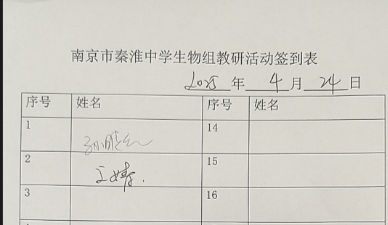 南京市秦淮中学生物组教研活动签到表
2025 年 4 月 24 日
序号 姓名 序号 姓名
1 14
2 王婧. 15
3 16